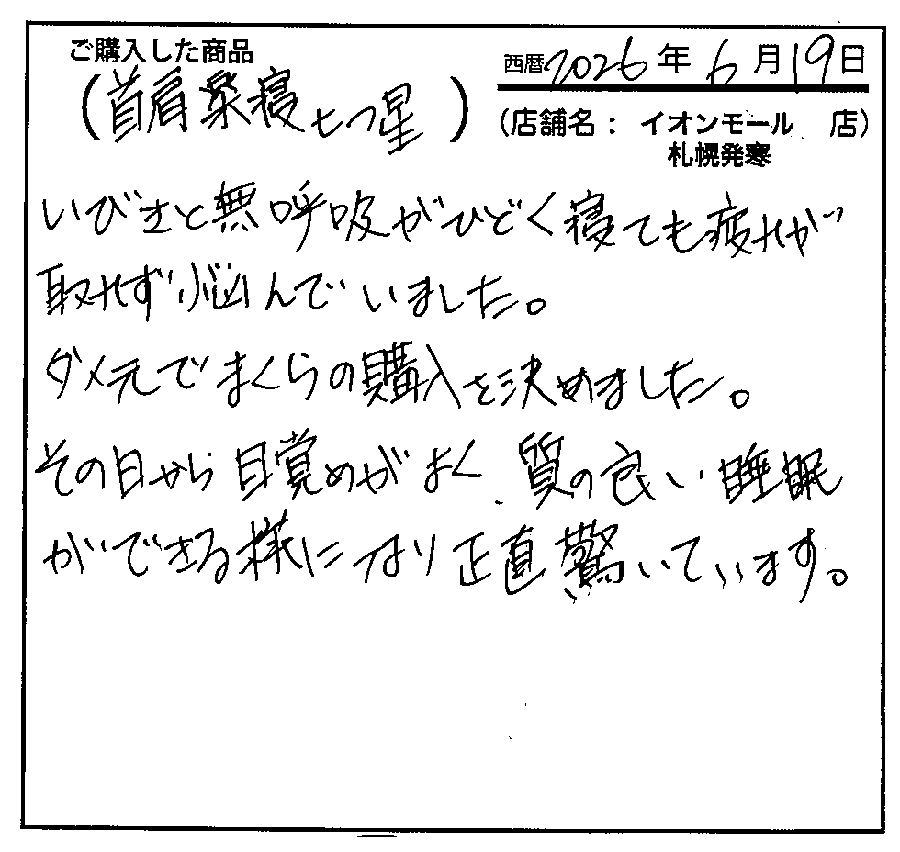 ご購入した商品
西暦2026年6月19日
(首肩楽寝 七つ星)
(店舗名:イオンモール 店)
札幌発寒
いびきと無呼吸がひどく寝ても疲れが
取れず悩んでいました。
ダメ元でまくらの購入を決めました。
その日から目覚めがよく、質の良い睡眠
ができる様になり正直驚いています。